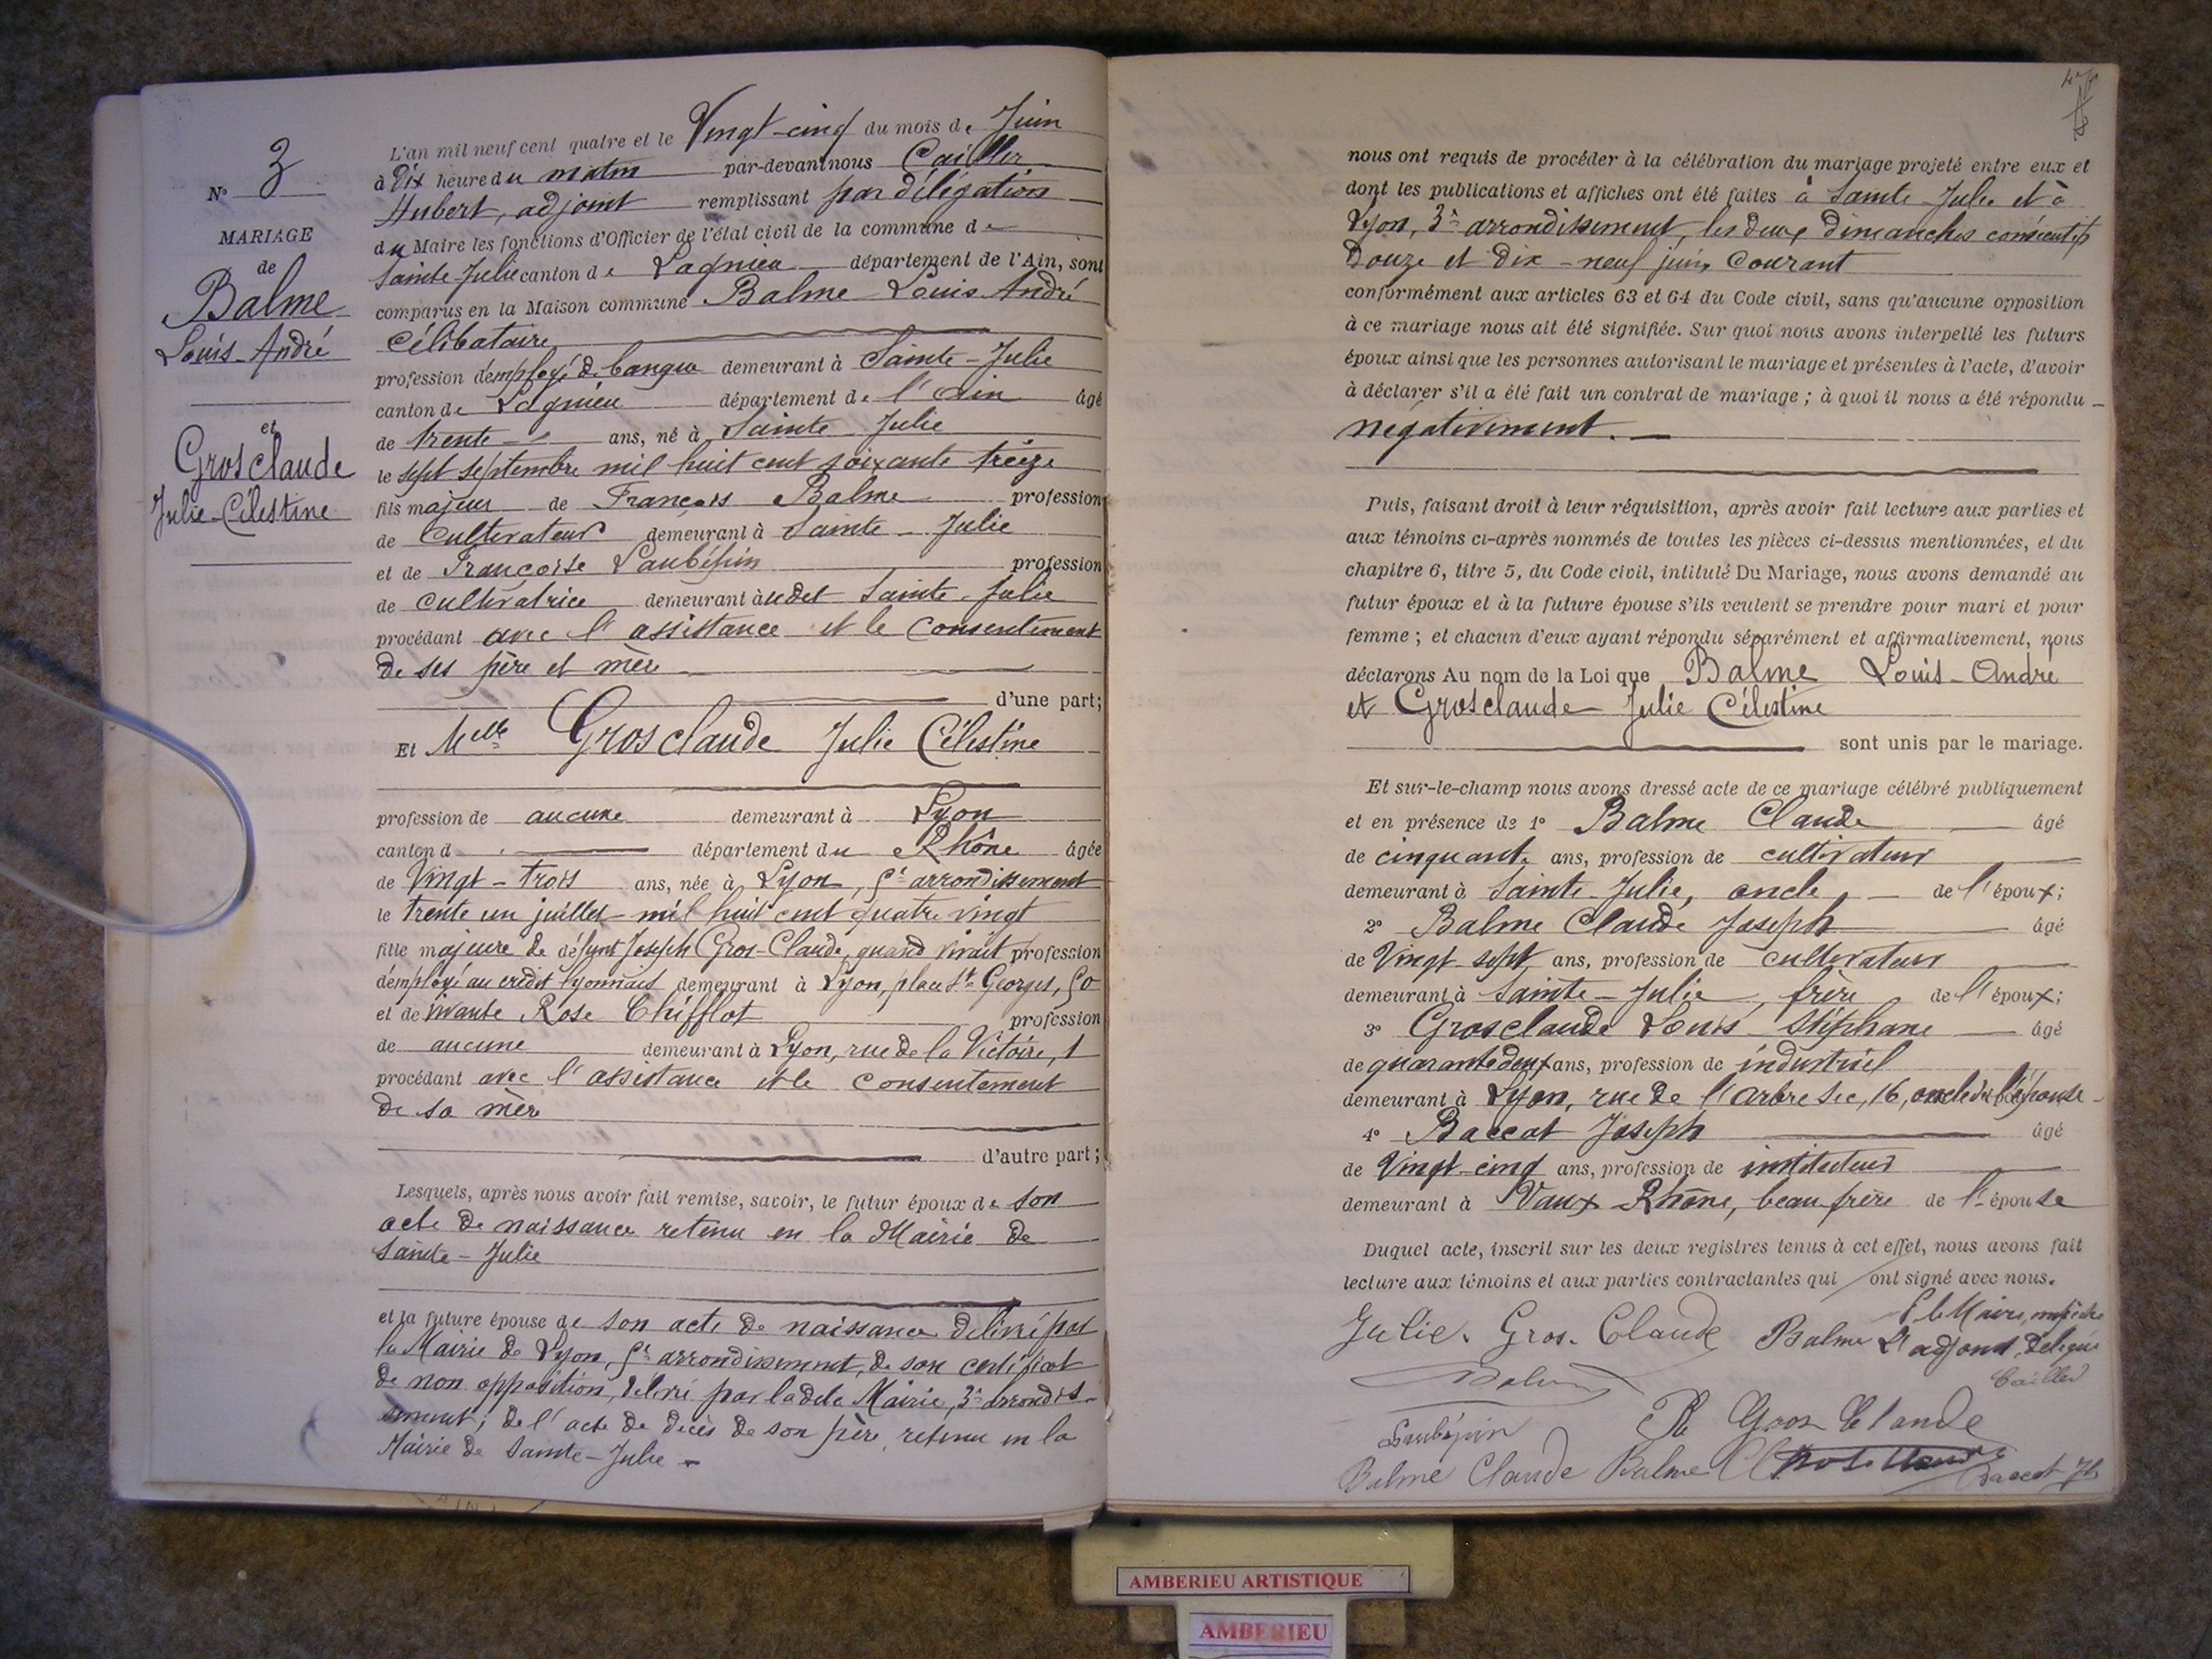 N° 3
MARIAGE
de
Balme
Louis-André
et
Grosclaude
Julie-Célestine
L'an mil neuf cent quatre et le Vingt-cinq du mois de Juin
à Dix heure du matin par-devant nous Caillier
Hubert, adjoint remplissant par délégation
du Maire les fonctions d'Officier de l'état civil de la commune de
Sainte-Julie canton de Lagnieu département de l'Ain, sont
comparus en la Maison commune Balme Louis André
Célibataire
profession d'employé de banque demeurant à Sainte-Julie
canton de Lagnieu département de l'Ain âgé
de trente ans, né à Sainte Julie
le sept septembre mil huit cent soixante treize
fils majeur de François Balme profession
de cultivateur demeurant à Sainte-Julie
et de Françoise Laubépin profession
de cultivatrice demeurant à udet Sainte-Julie
procédant avec l'assistance et le consentement
de ses père et mère
d'une part;
Et Melle Grosclaude Julie Célestine
profession de aucune demeurant à Lyon
canton d département du Rhône âgée
de Vingt-trois ans, née à Lyon, 5e arrondissement
le trente un juillet mil huit cent quatre vingt
fille majeure de défunt Joseph Gros-Claude, quand vivait profession
d'employé au crédit lyonnais demeurant à Lyon, place St Georges, 50
et de vivante Rose Chifflot profession
de aucune demeurant à Lyon, rue de la Victoire, 1
procédant avec l'assistance et le consentement
de sa mère
d'autre part;
Lesquels, après nous avoir fait remise, savoir, le futur époux de son
acte de naissance retenu en la Mairie de
Sainte-Julie
et la future épouse de son acte de naissance délivré par
la Mairie de Lyon, 5e arrondissement, de son certificat
de non opposition, délivré par ladite Mairie, 3e arrondis-
sement; de l'acte de décès de son père, retenu en la
Mairie de Sainte-Julie
47
nous ont requis de procéder à la célébration du mariage projeté entre eux et
dont les publications et affiches ont été faites à Sainte-Julie et à
Lyon, 3e arrondissement, les deux dimanches consécutifs
Douze et dix-neuf juin courant
conformément aux articles 63 et 64 du Code civil, sans qu'aucune opposition
à ce mariage nous ait été signifiée. Sur quoi nous avons interpellé les futurs
époux ainsi que les personnes autorisant le mariage et présentes à l'acte, d'avoir
à déclarer s'il a été fait un contrat de mariage ; à quoi il nous a été répondu
négativement.
Puis, faisant droit à leur réquisition, après avoir fait lecture aux parties et
aux témoins ci-après nommés de toutes les pièces ci-dessus mentionnées, et du
chapitre 6, titre 5, du Code civil, intitulé Du Mariage, nous avons demandé au
futur époux et à la future épouse s'ils veulent se prendre pour mari et pour
femme ; et chacun d'eux ayant répondu séparément et affirmativement, nous
déclarons Au nom de la Loi que Balme Louis-André
et Grosclaude Julie Célestine
sont unis par le mariage.
Et sur-le-champ nous avons dressé acte de ce mariage célébré publiquement
et en présence de 1° Balme Claude âgé
de cinquante ans, profession de cultivateur
demeurant à Sainte-Julie, oncle de l'époux;
2° Balme Claude Joseph âgé
de Vingt sept ans, profession de cultivateur
demeurant à Sainte-Julie, frère de l'époux;
3° Grosclaude Louis Stéphane âgé
de quarante deux ans, profession de industriel
demeurant à Lyon, rue de l'arbre sec, 16, oncle de l'épouse
4° Baccot Joseph âgé
de Vingt-cinq ans, profession de instituteur
demeurant à Vaux-Rhône, beau frère de l'épouse
Duquel acte, inscrit sur les deux registres tenus à cet effet, nous avons fait
lecture aux témoins et aux parties contractantes qui ont signé avec nous.
Julie. Gros. Claude Balme L
P le Maire, empêché
adjoint délégué
Caillier
Balme
Laubépin R Gros Claude
Balme Claude Balme Cl
Baccot Jh
AMBERIEU ARTISTIQUE
AMBERIEU